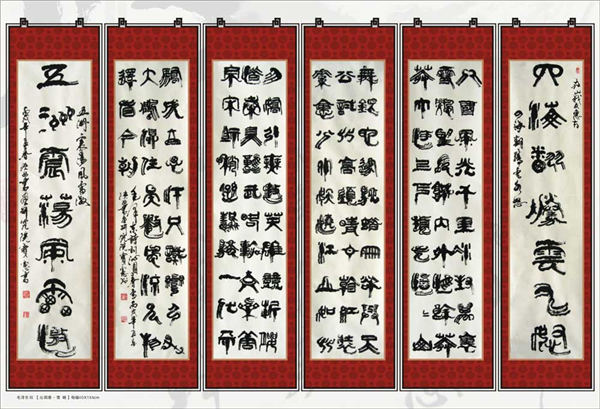 四海翻騰雲水怒
北國風光千里冰封萬里
雪飄望長城內外惟餘莽
莽大河上下頓失滔滔山
舞銀蛇原馳蠟象欲與天
公試比高須晴日看紅裝
素裹分外妖嬈江山如此
多嬌引無數英雄競折腰
惜秦皇漢武略輸文采唐
宗宋祖稍遜風騷一代天
驕成吉思汗只識彎弓射
大雕俱往矣數風流人物
還看今朝
五洲震蕩風雷激
五洲震蕩風雷激